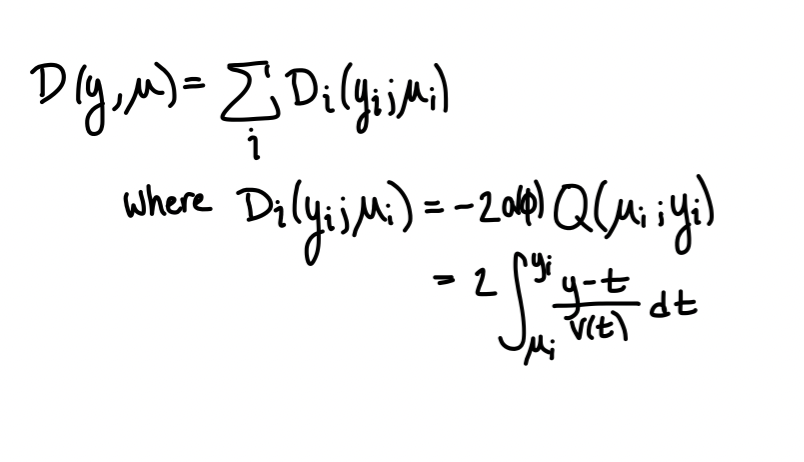 D(y,μ) = ∑_i D_i(y_i;μ_i)
where D_i(y_i;μ_i) = -2a(ϕ) Q(μ_i;y_i)
= 2 ∫_{μ_i}^{y_i} \frac{y-t}{V(t)} dt